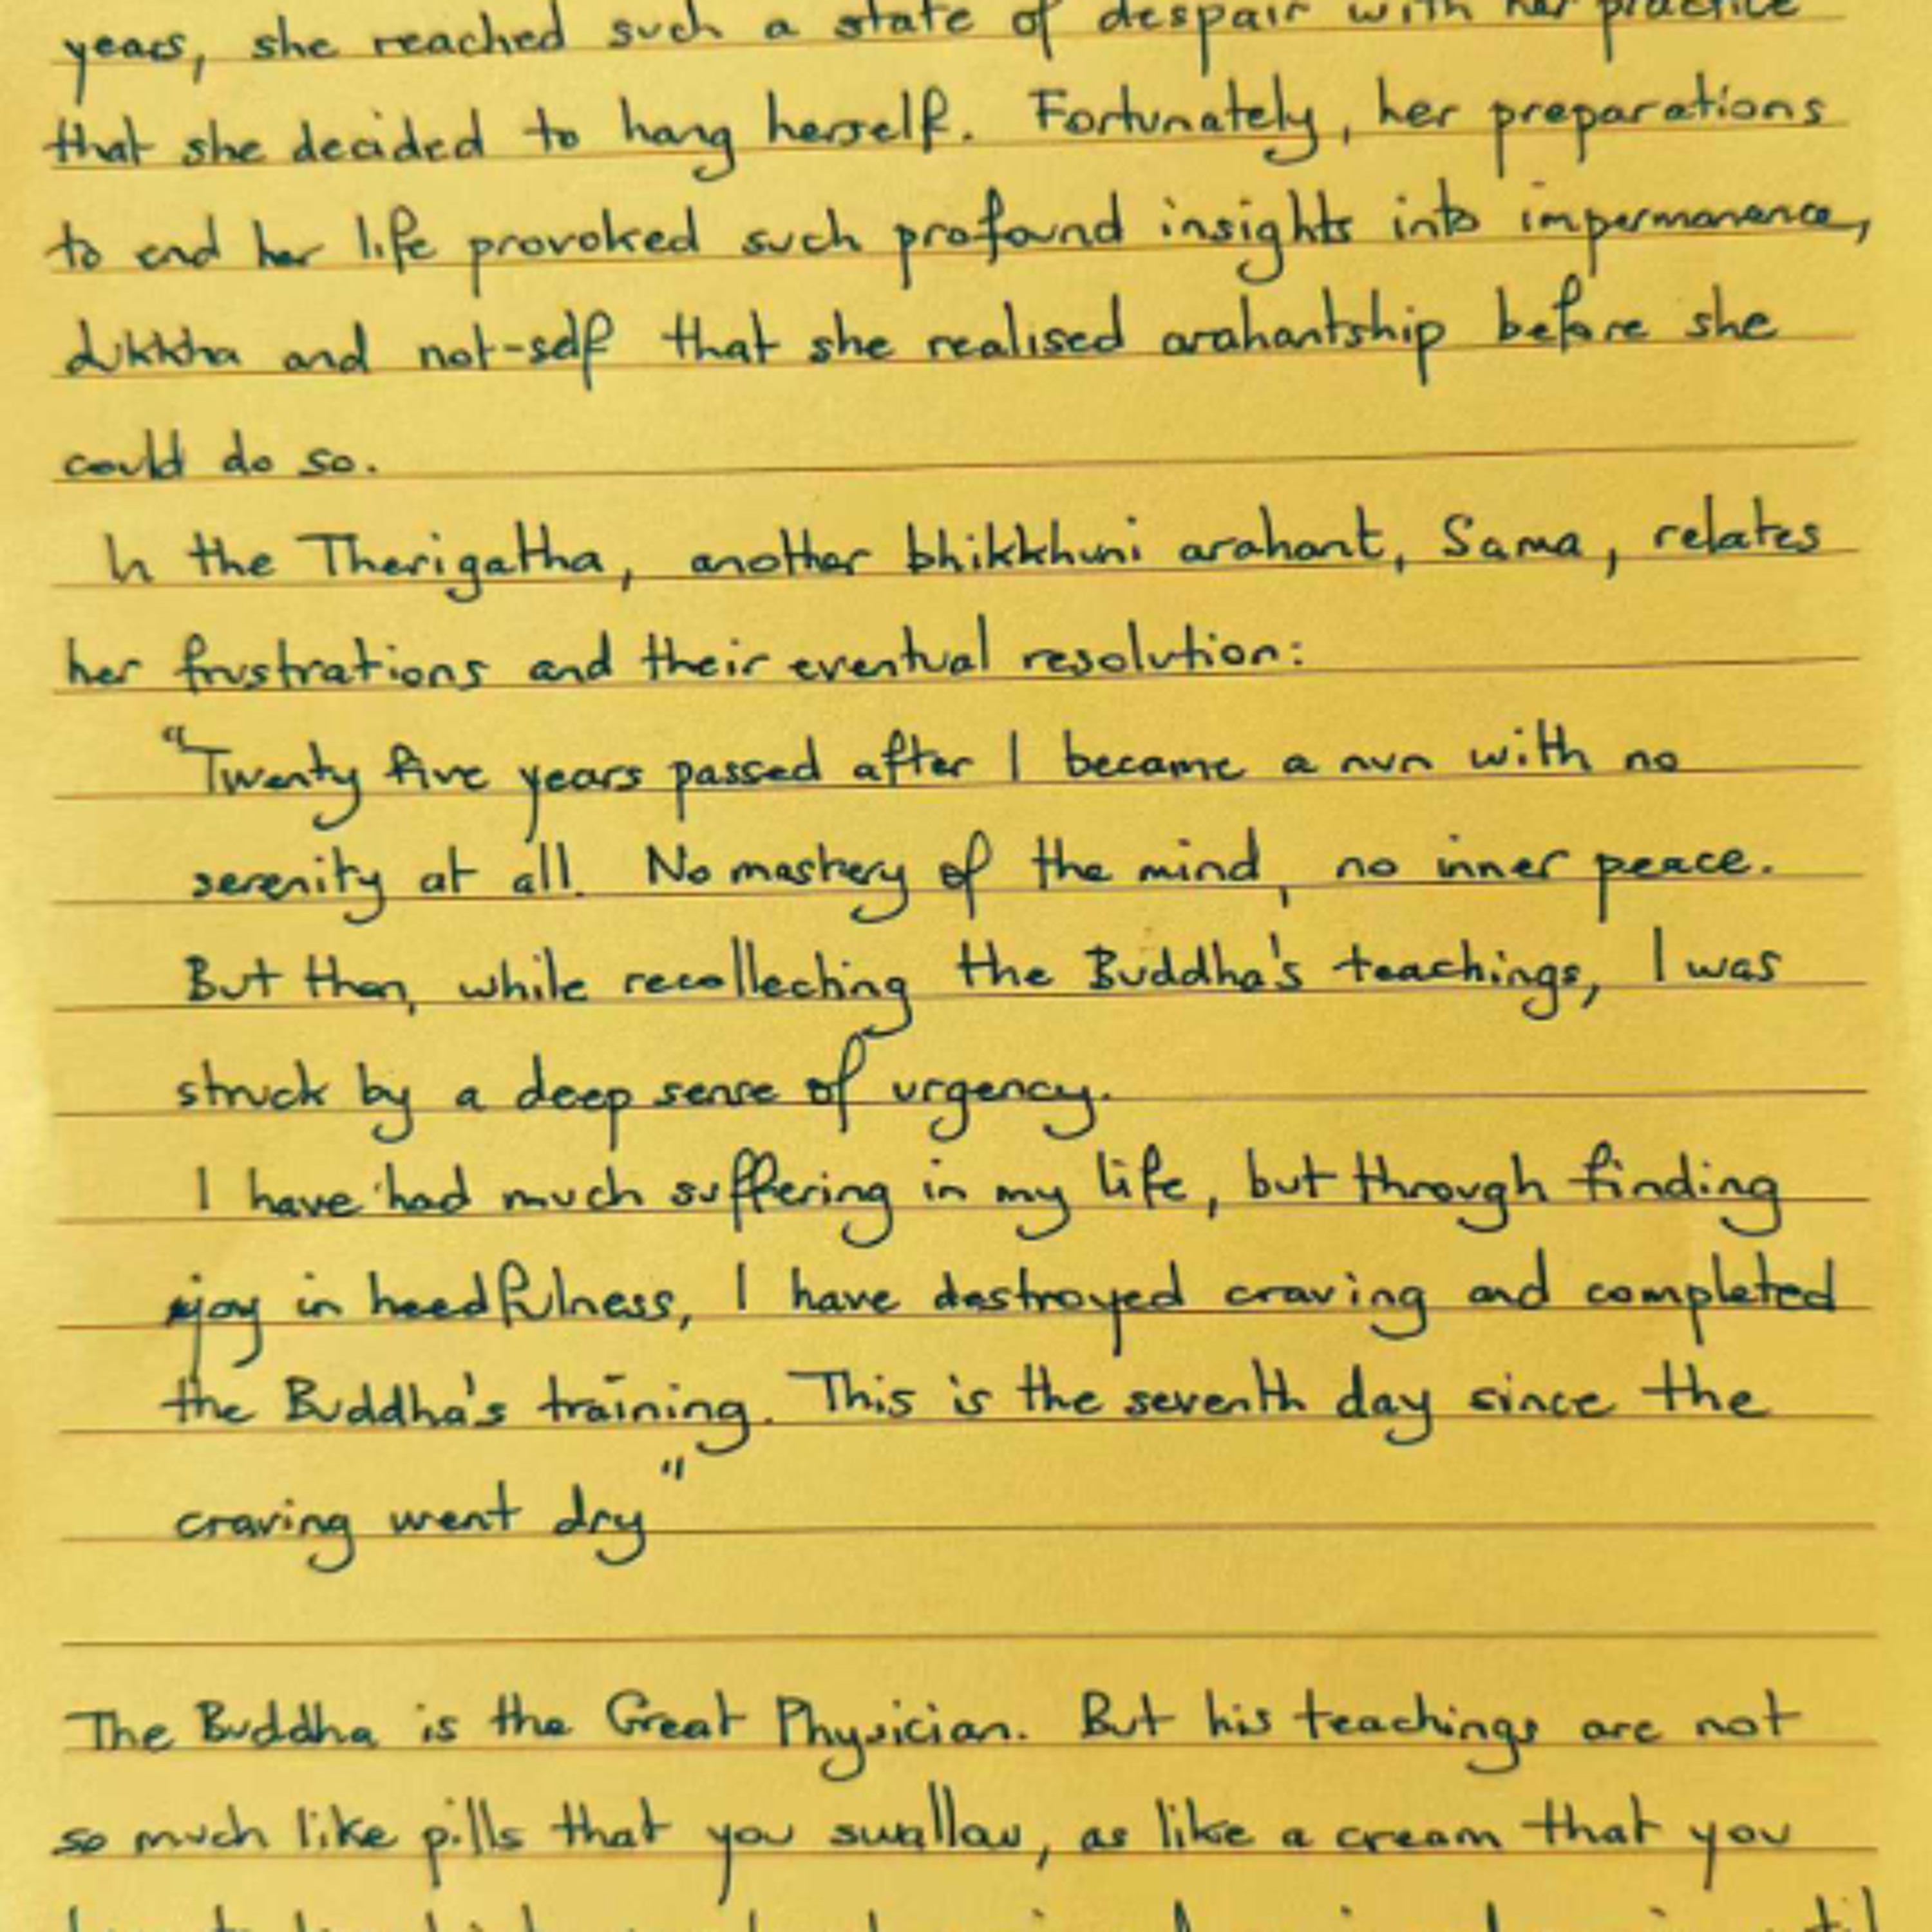 years, she reached such a state of despair with her practice
that she decided to hang herself. Fortunately, her preparations
to end her life provoked such profound insights into impermanence,
dukkha and not-self that she realised arahantship before she
could do so.
In the Therigatha, another bhikkhuni arahant, Sama, relates
her frustrations and their eventual resolution:
"Twenty five years passed after I became a nun with no
serenity at all. No mastery of the mind, no inner peace.
But then, while recollecting the Buddha's teachings, I was
struck by a deep sense of urgency.
I have had much suffering in my life, but through finding
joy in heedfulness, I have destroyed craving and completed
the Buddha's training. This is the seventh day since the
craving went dry"
The Buddha is the Great Physician. But his teachings are not
so much like pills that you swallow, as like a cream that you